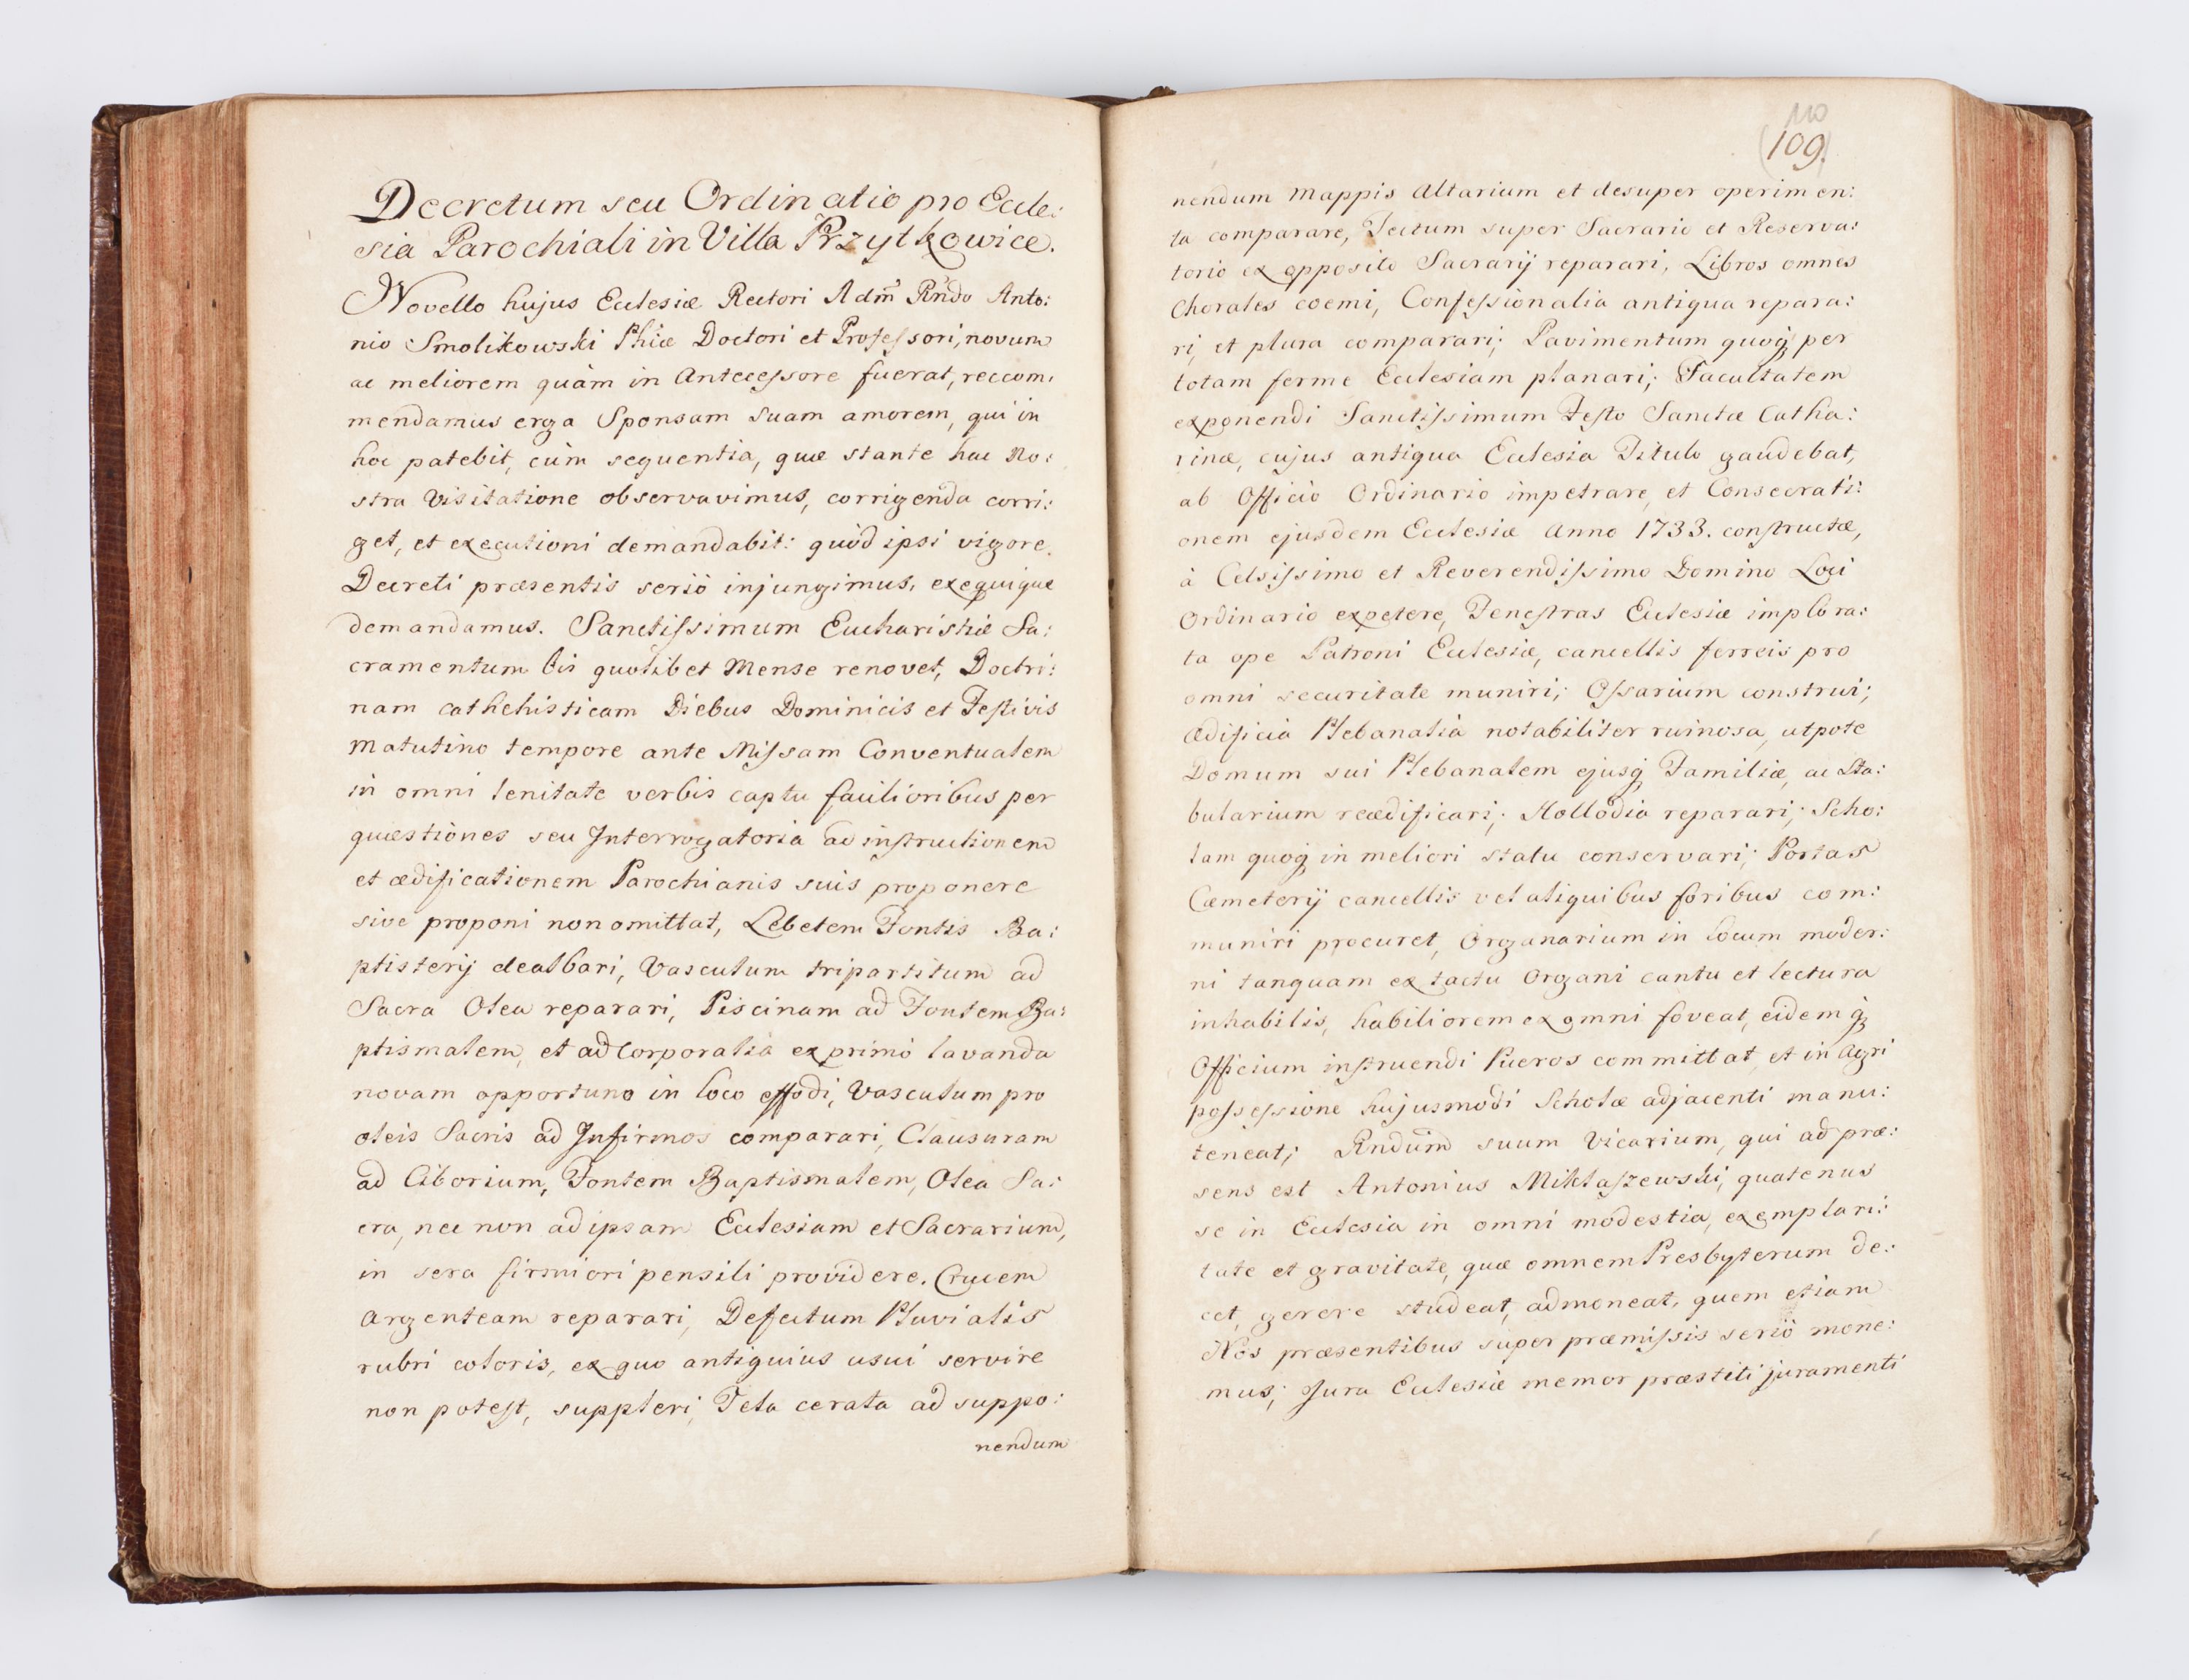 Decretum seu Ordinatio pro Eccle:
sia Parochiali in Villa Przytkowice.
Novello hujus Ecclesiæ Rectori Adm̃ Rñdo Anto:
nio Smolikowski Phiæ Doctori et Professori, novum
ac meliorem quàm in Antecessore fuerat, reccom:
mendamus erga Sponsam suam amorem, qui in
hoc patebit, cùm sequentia, quæ stante hac No:
stra Visitatione observavimus, corrigenda corri:
get, et executioni demandabit: quòd ipsi vigore
Decreti præsentis seriò injungimus, exequique
demandamus. Sanctissimum Eucharistiæ Sa:
cramentum bis quotibet Mense renovet, Doctri:
nam cathehisticam Diebus Dominicis et Festivis
Matutino tempore ante Missam Conventualem
in omni lenitate verbis captu facilioribus per
quæstiones seu Interrogatoria ad instructionem
et ædificationem Parochianis suis proponere
sive proponi non omittat, Lebetem Fontis Ba:
ptisterij dealbari, Vasculum tripartitum ad
Sacra Olea reparari, Piscinam ad Fontem Ba:
ptismalem, et ad Corporalia ex primò lavanda
novam opportuno in loco effodi, Vasculum pro
oleis Sacris ad Infirmos comparari, Clausuram
ad Ciborium, Fontem Baptismalem, Olea Sa:
cra, nec non ad ipsam Ecclesiam et Sacrarium,
in sera firmiori pensili providere. Crucem
Argenteam reparari, Defectum Pluvialis
rubri coloris, ex quo antiquius usui servire
non potest, suppleri, Tela cerata ad suppo:
nendum
110
(109.)
nendum Mappis Altarium et desuper operimen:
ta comparare, Tectum super Sacrario et Reserva:
torio ex opposito Sacrarij reparari, Libros omnes
Chorales coemi, Confessionalia antiqua repara:
ri, et plura comparari; Pavimentum quoq́ per
totam ferme Ecclesiam planari; Facultatem
exponendi Sanctissimum Festo Sanctæ Catha:
rinæ, cujus antiqua Ecclesia Titulo gaudebat,
ab Officio Ordinario impetrare, et Consecrati:
onem ejusdem Ecclesiæ Anno 1733. constructæ,
à Celsissimo et Reverendissimo Domino Loci
Ordinario expetere, Fenestras Ecclesiæ implora:
ta ope Patroni Ecclesiæ, cancellis ferreis pro
omni securitate muniri; Ossarium construi;
Ædificia Plebanalia notabiliter ruinosa, utpote
Domum sui Plebanalem ejusq́ Familiæ, ac Sta:
bularium reædificari; Hollodia reparari; Scho:
lam quoq́ in meliori statu conservari; Portas
Cæmeterij cancellis vel aliquibus foribus com:
muniri procuret, Organarium in locum moder:
ni tanquam ex tactu Organi cantu et lectura
inhabilis, habiliorem ex omni foveat, eidemq́
Officium instruendi Pueros committat, et in Agri
possessione hujusmodi Scholæ adjacenti manu:
teneat; Rndum̃ suum Vicarium, qui ad præ:
sens est Antonius Miklaszewski, quatenus
se in Ecclesia in omni modestia, exemplari:
tate et gravitate, quæ omnem Presbyterum de:
cet, gerere studeat, admoneat, quem etiam
Nos præsentibus super præmissis seriò mone:
mus; Jura Ecclesiæ memor præstiti juramenti